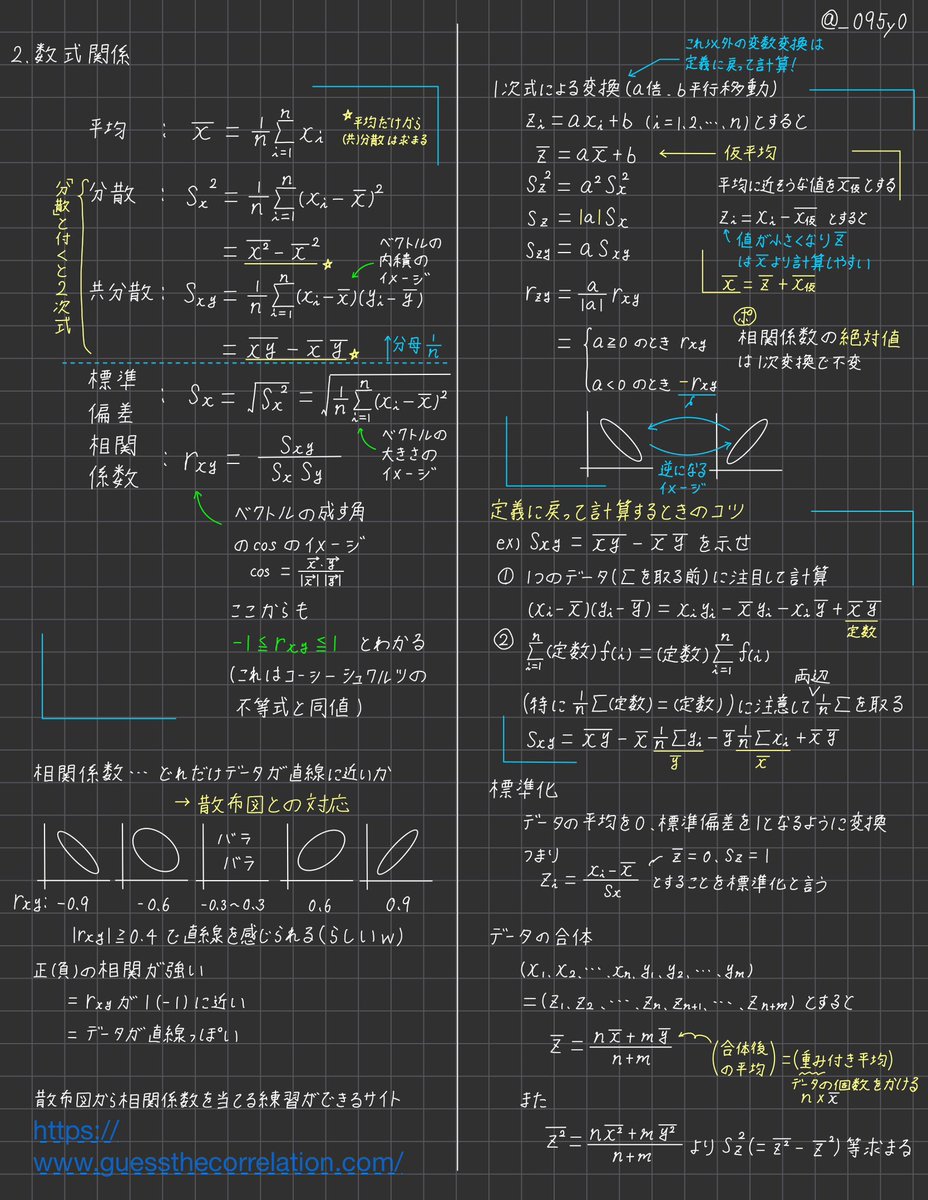 @_095y0
2.数式関係
平均 : x̄ = 1/n Σ[i=1→n] xᵢ
☆平均だけから
(共)分散は求まる
「分散」と付くと2次式
分散 : Sx² = 1/n Σ[i=1→n] (xᵢ - x̄)²
= \overline{x²} - x̄² ☆
共分散 : Sxy = 1/n Σ[i=1→n] (xᵢ - x̄)(yᵢ - ȳ)
ベクトルの
内積の
イメージ
= \overline{xy} - x̄ ȳ ☆
↑分母 1/n
標準
偏差 : Sx = √Sx² = √(1/n Σ[i=1→n] (xᵢ - x̄)²)
ベクトルの
大きさの
イメージ
相関
係数 : rxy = Sxy / (Sx Sy)
ベクトルの成す角
のcosのイメージ
cos = x⃗・y⃗ / |x⃗||y⃗|
ここからも
-1 ≦ rxy ≦ 1 とわかる
(これはコーシーシュワルツの
不等式と同値)
相関係数… どれだけデータが直線に近いか
→ 散布図との対応
バラ
バラ
rxy: -0.9 -0.6 -0.3~0.3 0.6 0.9
|rxy| ≧ 0.4 で直線を感じられる(らしいw)
正(負)の相関が強い
= rxyが1(-1)に近い
= データが直線っぽい
散布図から相関係数を当てる練習ができるサイト
https://
www.guessthecorrelation.com/
これ以外の変数変換は
定義に戻って計算!
1次式による変換(a倍、b平行移動)
zᵢ = axᵢ + b (i=1,2,…,n)とすると
z̄ = ax̄ + b ← 仮平均
Sz² = a²Sx²
Sz = |a|Sx
Szy = aSxy
rzy = a/|a| rxy
= { a≧0 のとき rxy
a<0 のとき -rxy
平均に近そうな値をx̄仮とする
zᵢ = xᵢ - x̄仮 とすると
↑値が小さくなりz̄
はx̄より計算しやすい
x̄ = z̄ + x̄仮
ポ
相関係数の絶対値
は1次変換で不変
逆になる
イメージ
定義に戻って計算するときのコツ
ex) Sxy = \overline{xy} - x̄ ȳ を示せ
① 1つのデータ(Σを取る前)に注目して計算
(xᵢ - x̄)(yᵢ - ȳ) = xᵢyᵢ - x̄yᵢ - xᵢȳ + x̄ ȳ
定数
② Σ[i=1→n] (定数)f(i) = (定数) Σ[i=1→n] f(i)
両辺
(特に 1/n Σ(定数) = (定数))に注意して 1/n Σを取る
Sxy = \overline{xy} - x̄ 1/n Σyᵢ - ȳ 1/n Σxᵢ + x̄ ȳ
ȳ x̄
標準化
データの平均を0、標準偏差を1となるように変換
つまり z̄ = 0、Sz = 1
zᵢ = (xᵢ - x̄)/Sx とすることを標準化と言う
データの合体
(x₁、x₂、…、xn、y₁、y₂、…、ym)
= (z₁、z₂、…、zn、zn+1、…、zn+m) とすると
z̄ = (nx̄ + mȳ)/(n+m)
(合体後の平均) = (重み付き平均)
データの個数をかける
n × x̄
また
\overline{z²} = (n\overline{x²} + m\overline{y²})/(n+m) より Sz²(= \overline{z²} - z̄²) 等求まる